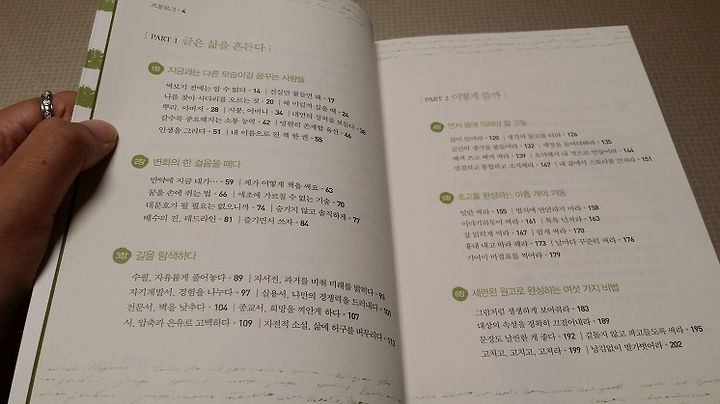 프롤로그 · 4
PART 1 글은 삶을 흔든다
1장 지금과는 다른 모습이길 꿈꾸는 사람들
써보기 전에는 알 수 없다 · 14 | 진실만 붙들면 돼 · 17
나를 찾아 사다리를 오르는 것 · 20 | 왜 이럴까 싶을 때 · 24
뿌리, 아버지 · 28 | 지붕, 어머니 · 34 | 내면의 상처를 보듬다 · 38
갈수록 중요해지는 소통 능력 · 42 | 영원히 존재할 유산 · 46
인생을 그리다 · 51 | 내 이름으로 된 책 한 권 · 55
2장 변화의 한 걸음을 떼다
만약에 지금 내가… · 59 | 제가 어떻게 책을 써요 · 63
꿈을 손에 쥐는 법 · 66 | 애초에 가르칠 수 없는 기술 · 70
대문호가 될 필요는 없으니까 · 74 | 숨기지 않고 솔직하게 · 77
배수의 진, 데드라인 · 81 | 즐기면서 쓰자 · 84
3장 길을 탐색하다
수필, 자유롭게 풀어놓다 · 89 | 자서전, 과거를 비춰 미래를 밝히다 · 93
자기계발서, 경험을 나누다 · 97 | 실용서, 나만의 경쟁력을 드러내다 · 101
전문서, 벽을 낮추다 · 104 | 종교서, 희망을 껴안게 하다 · 107
시, 압축과 은유로 고백하다 · 109 | 자전적 소설, 삶에 허구를 버무리다 · 112
PART 2 어떻게 쓸까
4장 먼저 몸에 익혀야 할 것들
많이 읽어라 · 120 | 생각의 물꼬를 터라 · 126
순간의 생각을 붙들어라 · 132 | 세상을 들여다봐라 · 135
베껴 쓰고 베껴 써라 · 139 | 요약해서 내 것으로 만들어라 · 144
연결하고 통합하고 조직해라 · 147 | 내 삶에서 스토리를 건져라 · 151
5장 초고를 완성하는 아홉 개의 기둥
일단 써라 · 155 | 법칙에 연연하지 마라 · 158
이야기하듯이 써라 · 161 | 툭툭 던져라 · 163
잘 읽히게 써라 · 167 | 쉽게 써라 · 170
흉내 내고 따라 해라 · 173 | 날마다 꾸준히 써라 · 176
기어이 마침표를 찍어라 · 179
6장 세련된 원고로 완성하는 여섯 가지 비법
그림처럼 생생하게 보여줘라 · 183
대상의 속성을 정확히 끄집어내라 · 189
문장도 날씬한 게 좋다 · 192 | 겉돌지 않고 파고들도록 써라 · 195
고치고, 고치고, 고쳐라 · 199 | 남김없이 발가벗어라 · 202